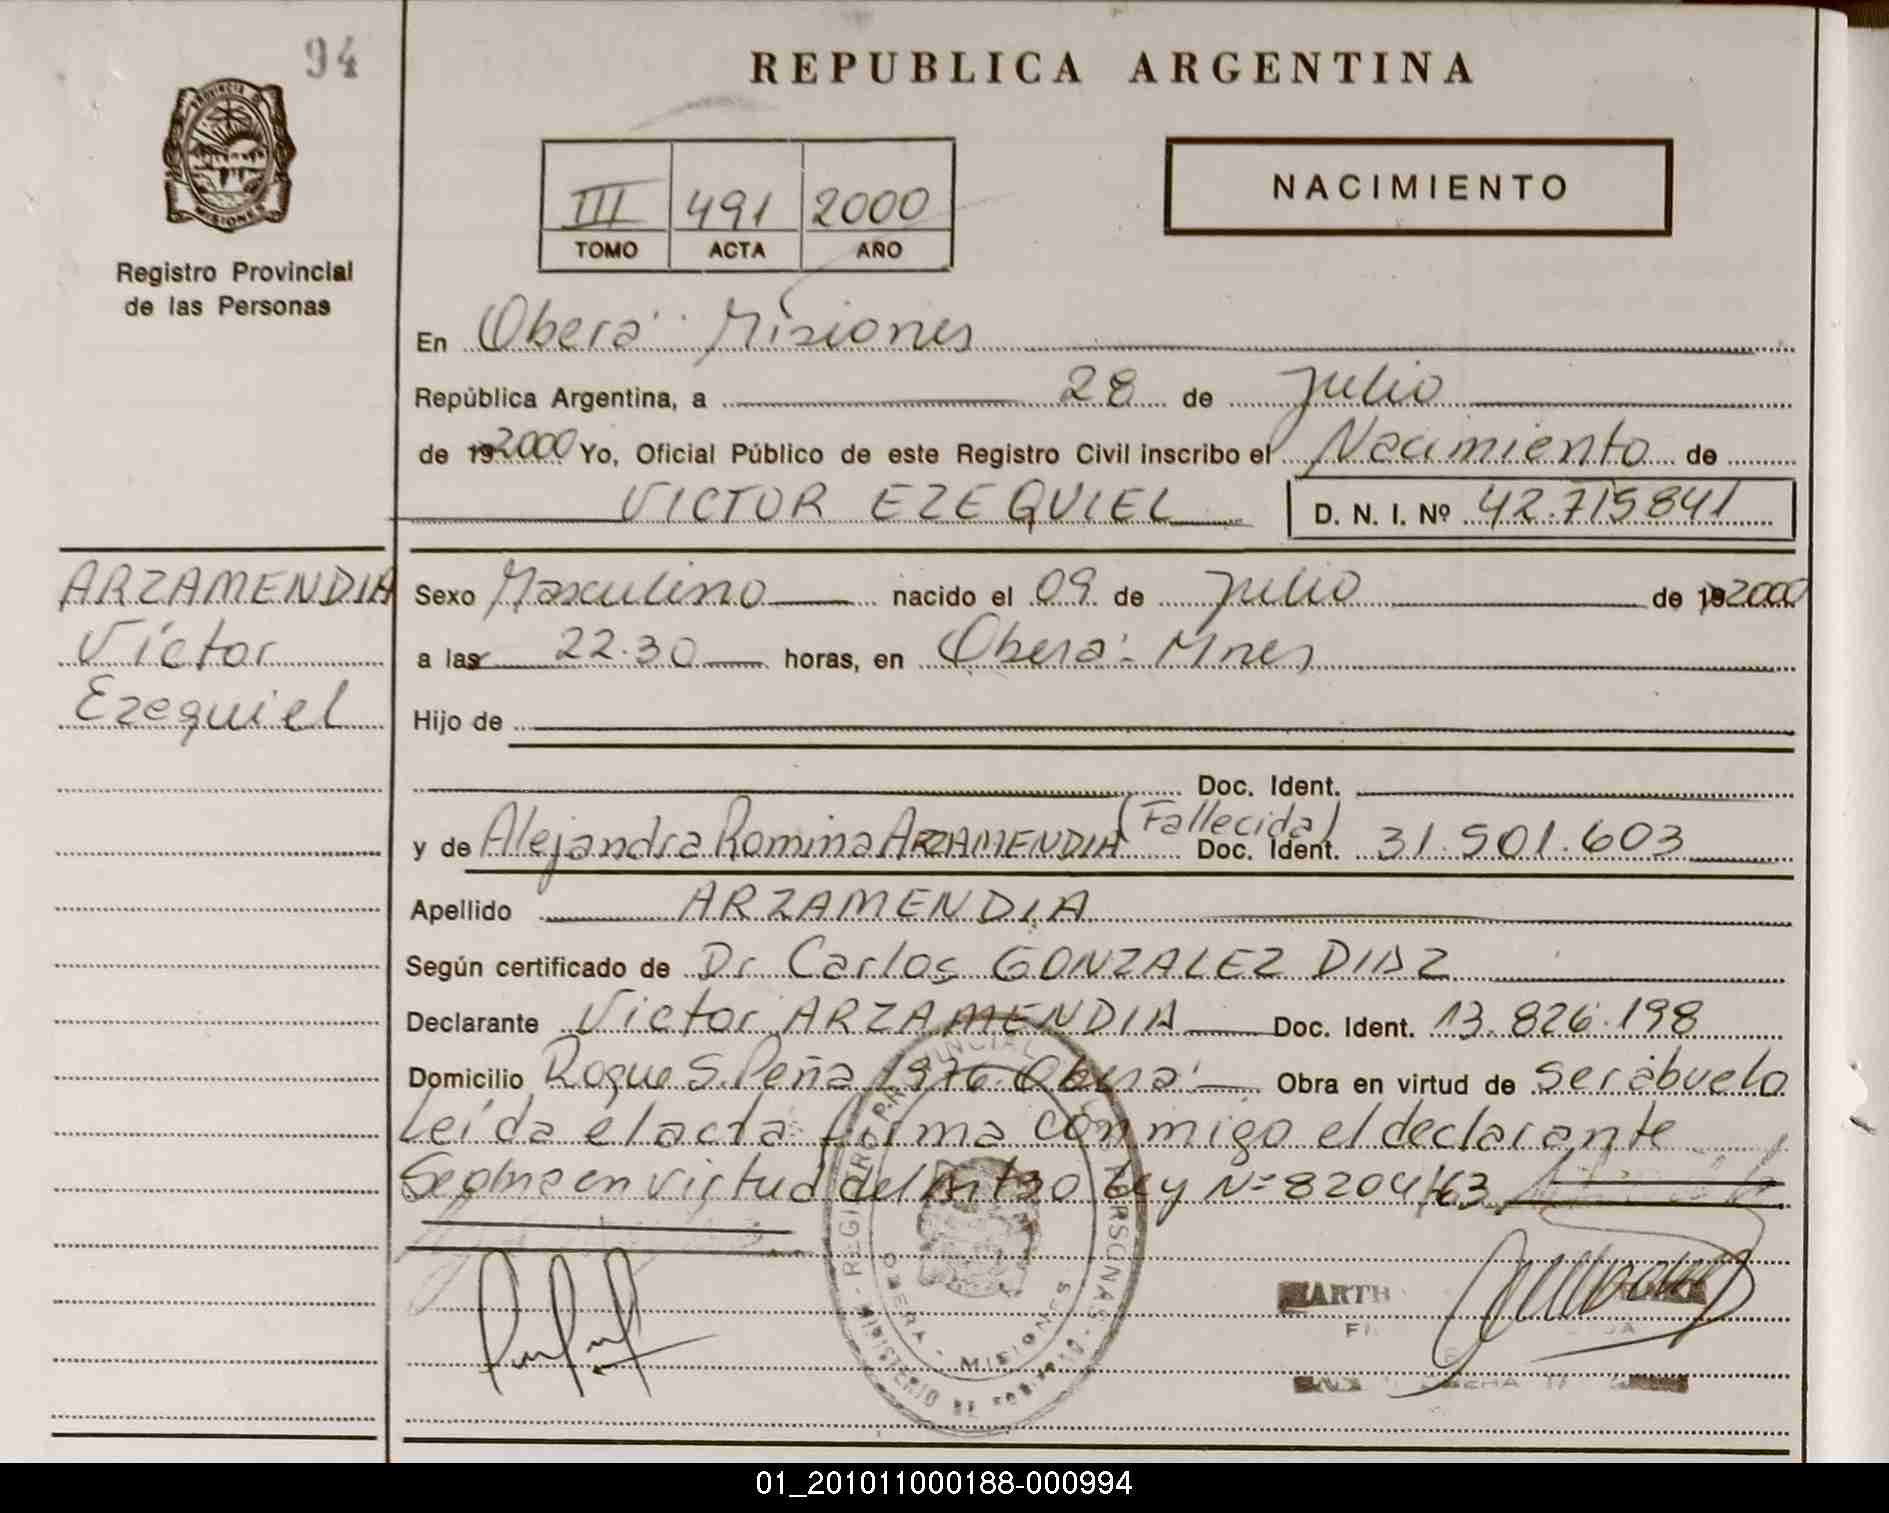 94
REPUBLICA ARGENTINA
PROVINCIA DE
MISIONES
Registro Provincial
de las Personas
III 491 2000
TOMO ACTA AÑO
NACIMIENTO
En Oberá Misiones
República Argentina, a 28 de Julio
de 192000 Yo, Oficial Público de este Registro Civil inscribo el Nacimiento de
VICTOR EZEQUIEL D. N. I. Nº 42.715841
ARZAMENDIA
Víctor
Ezequiel
Sexo Masculino nacido el 09 de Julio de 192000
a las 22.30 horas, en Oberá - Mnes
Hijo de
Doc. Ident.
y de Alejandra Romina ARZAMENDIA (Fallecida) Doc. Ident. 31.501.603
Apellido ARZAMENDIA
Según certificado de Dr. Carlos GONZALEZ DIAZ
Declarante Victor ARZAMENDIA Doc. Ident. 13.826.198
Domicilio Roque S. Peña 1976 Oberá Obra en virtud de ser abuelo
Leída el acta firma conmigo el declarante
en virtud del Art 30 Ley Nº 8204/63
REGISTRO PROVINCIAL DE LAS PERSONAS
MINISTERIO DE GOBIERNO
OBERA - MISIONES
01_201011000188-000994